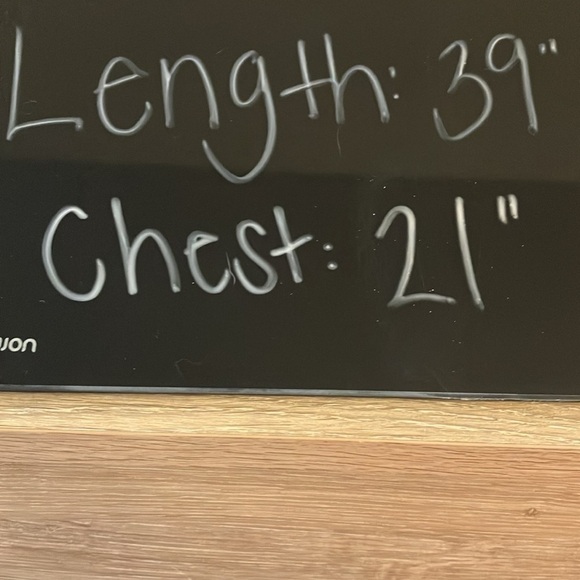 Length: 39"
Chest: 21"